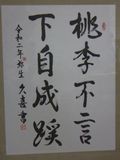 桃李不言
下自成蹊
令和二年弥生
久喜書